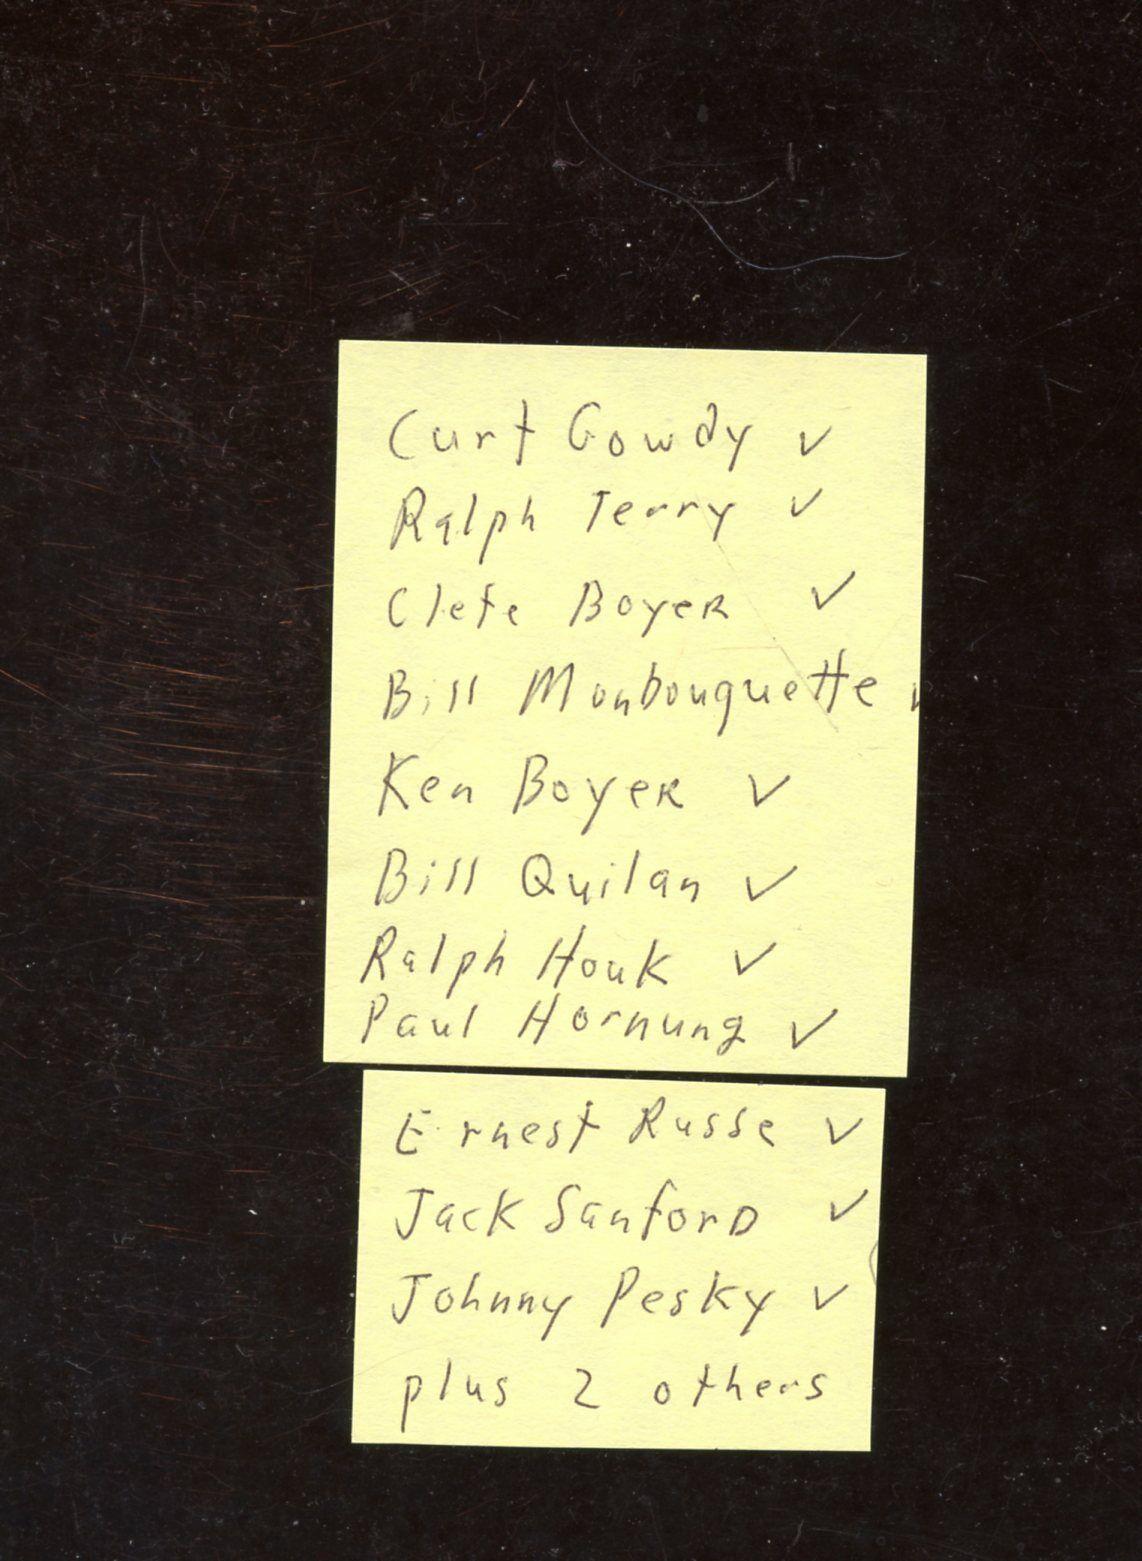 Curt Gowdy ✓
Ralph Terry ✓
Clete Boyer ✓
Bill Monbouquette ✓
Ken Boyer ✓
Bill Quilan ✓
Ralph Houk ✓
Paul Hornung ✓
Ernest Russe ✓
Jack Sanford ✓
Johnny Pesky ✓
plus 2 others